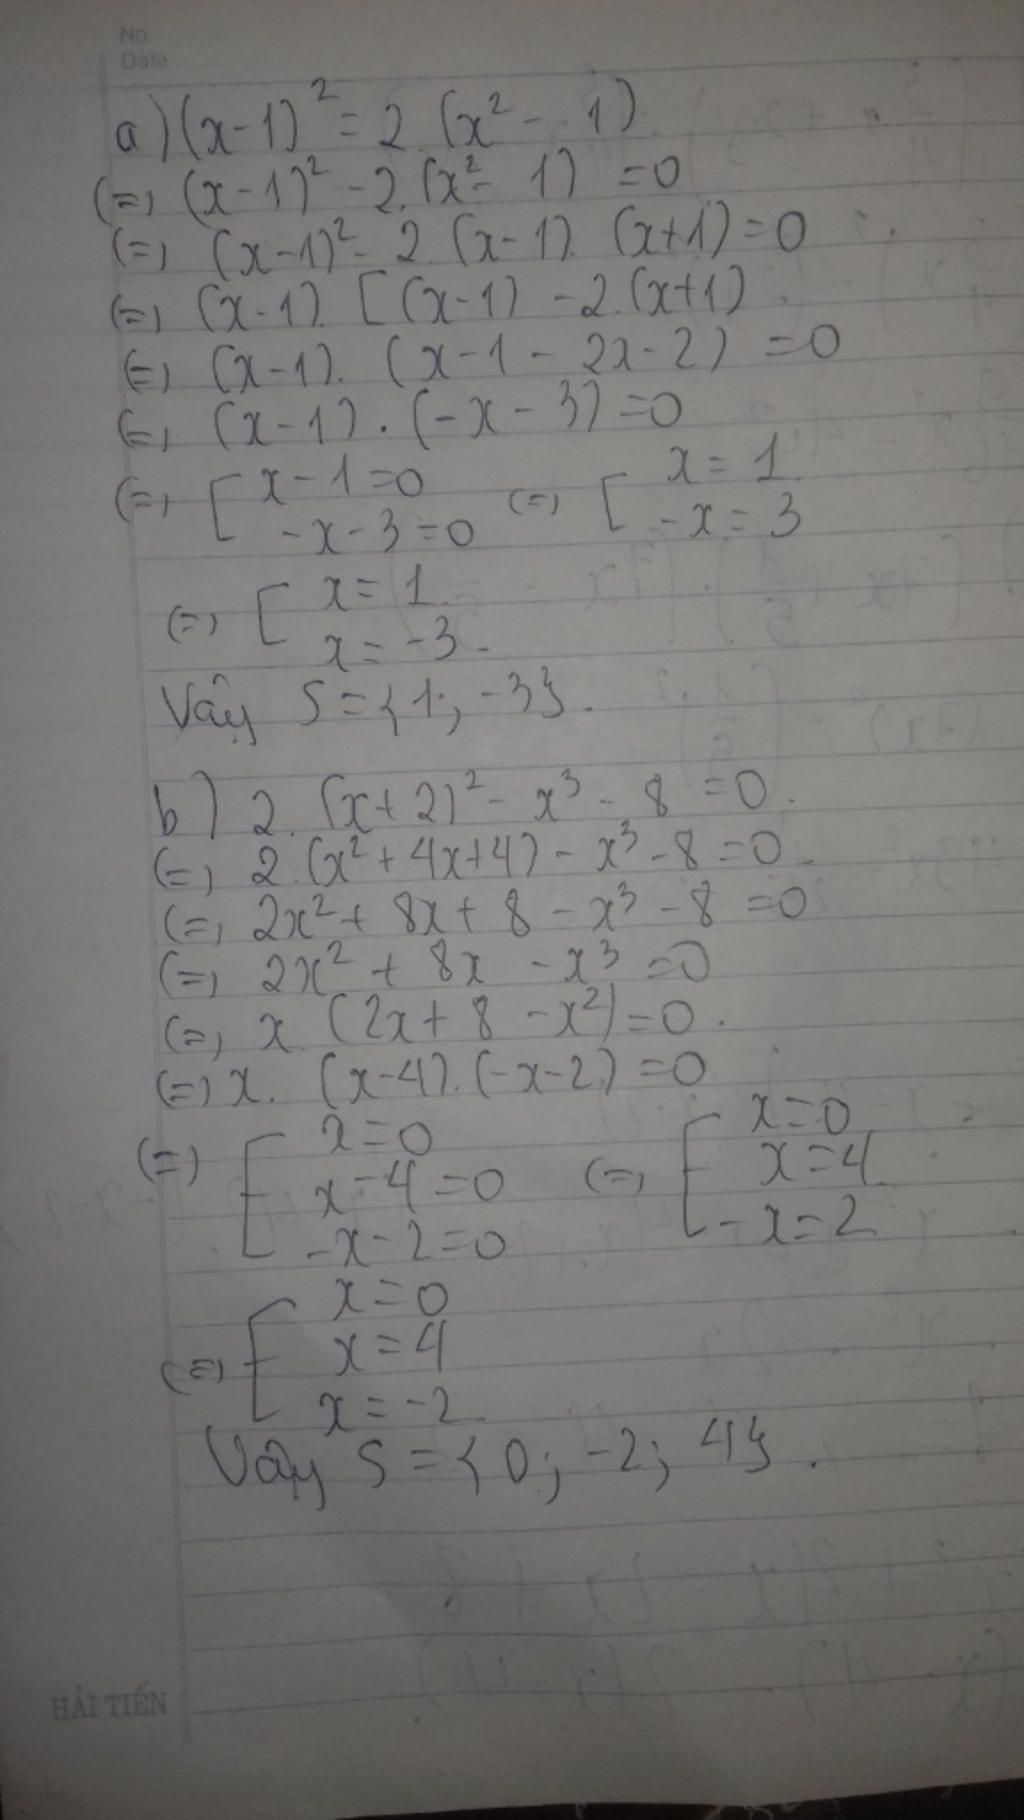 No.
Date
a) (x-1)² = 2.(x² - 1)
(=) (x-1)² - 2.(x² - 1) = 0
(=) (x-1)² - 2.(x-1).(x+1) = 0
(=) (x-1).[(x-1) - 2.(x+1)
(=) (x-1).(x-1-2x-2) = 0
(=) (x-1).(-x-3) = 0
(=) [ x-1=0 (=) [ x=1
-x-3=0 -x=3
(=) [ x=1
x=-3.
Vậy S={1;-3}.
b) 2.(x+2)² - x³ - 8 = 0.
(=) 2.(x²+4x+4) - x³ - 8 = 0
(=) 2x² + 8x + 8 - x³ - 8 = 0
(=) 2x² + 8x - x³ = 0
(=) x.(2x+8-x²) = 0.
(=) x.(x-4).(-x-2) = 0
(=) [ x=0 (=) [ x=0
x-4=0 x=4
-x-2=0 -x=2
(=) [ x=0
x=4
x=-2
Vậy S={0;-2;4}.
HẢI TIẾN